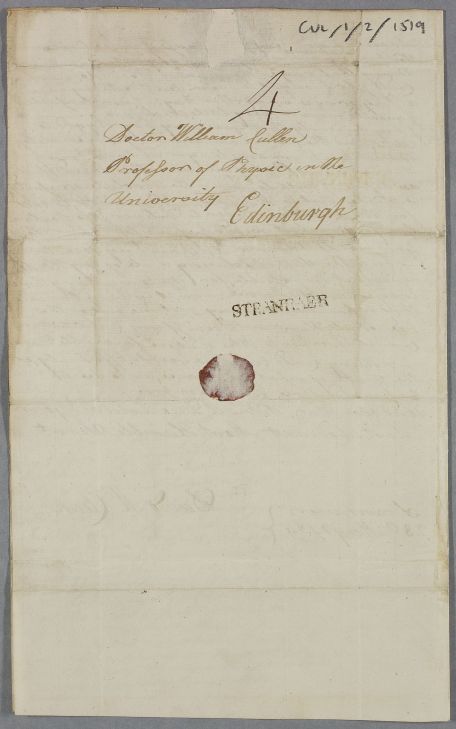 CUL/1/2/1519
4
Doctor William Cullen
Professor of Physic in the
University
Edinburgh
STRANRAER